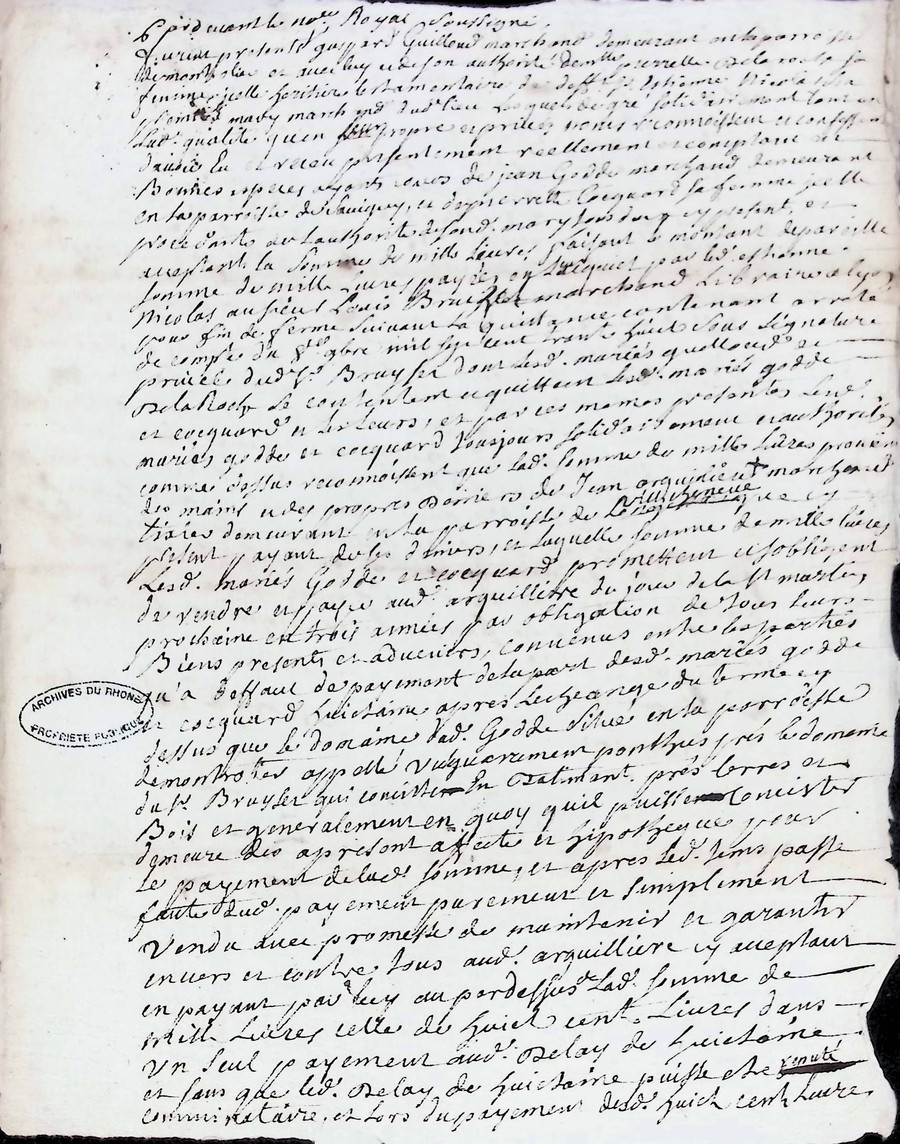 Pardevant le no.re Royal soussigné
furent presents gaspard Guilloud marchand demeurant en la parroisse
de montrotier et avec luy et de son authorité dem.lle pierrette Delaroche sa
femme, jcelle heritiere testamentaire de deffunt s.r Estienne Nicolas son
premier mary marchand dud. lieu lesquels de gré solidairement tant en
lad. qualité qu'en propre et privés noms reconnoissent et confessent
d'avoir eu et receu presentement reellement et comptant en
Bonnes especes ayant cours de jean Godde marchand demeurant
en la parroisse de Savigny, et de pierrette Cocquard sa femme jcelle
procedante de l'authorité desond. mary tous deux cy presents et
acceptants la somme de mille livres faisant le montant de pareille
somme de mille livres payée en acquit par led. estienne
Nicolas au sieur Louis Bruyset marchand Libraire a lyon
pour fin de ferme suivant la quittance contenant arresté
de compte du 9bre mil sept cent trante huict sous signature
privée dud. s.r Bruyset dont lesd. mariés guilloud et
Delaroche se contentent et quittent lesd. mariés godde
et cocquard et les leurs, et par ces mêmes presentes lesd.
mariés godde et cocquard tousjours solidairement et authorisés
comme dessus reconnoissent que lad. somme de mille livres provient
des mains et des propres deniers de Jean arquilliere marchand
demeurant en la parroisse de villecheneve cy
present payant de ses deniers, et laquelle somme de mille livres
Lesd. mariés Godde et cocquard promettent et s'obligent
de rendre et payer aud. arquilliere du jour de la st martin
prochaine en trois années par obligation de tous leurs
Biens presents et advenirs, convenus entre les parties
qu'a deffaut de payement de la part desd. mariés godde
et cocquard huictaine apres l'echeange du terme cy
dessus que le domaine dud. Godde situé en la parroisse
de montrotier appellé vulguairement ponthus près le domaine
du s.r Bruyset qui consiste En Batiment, prés terres et
Bois et generalement en quoy quil puisse Concister
demeure des apresent affecté et hipothequé pour
le payement de lad. somme, et apres led. tems passé
faute dud. payement purement et simplement
Vendu avec promesse de maintenir et garantir
envers et contre tous aud. arquilliere cy acceptant
en payant par luy au pardessus lad. somme de
mille Livres celle de huict cent Livres dans
un seul payement aud. Delay de huictaine
et sans que led. Delay de huictaine puisse etre reputé
comminatoire, et lors du payement desd. huict cent Livres
ARCHIVES DU RHONE
PROPRIETE PUBLIQUE